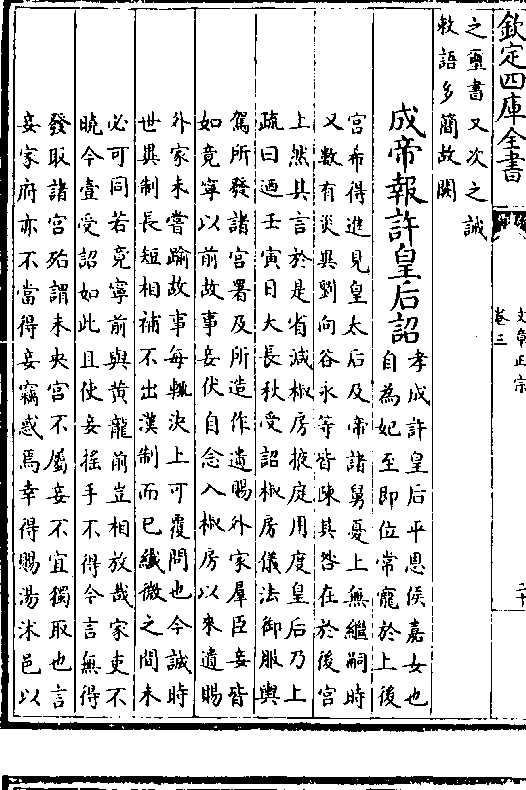 欽定四庫全書
文章正宗
卷三
二十
之璽書又次之誡
敕語多簡故闕
成帝報許皇后詔
孝成許皇后平恩侯嘉女也
自為妃至即位常寵於上後
宮希得進見皇太后及帝諸舅憂上無繼嗣時
又數有災異劉向谷永等皆陳其咎在於後宮
上然其言於是省減椒房掖庭用度皇后乃上
疏曰迺壬寅日大長秋受詔椒房儀法御服輿
駕所發諸宮署及所造作遺賜外家羣臣妾皆
如竟寧以前故事妾伏自念入椒房以來遺賜
外家未嘗踰故事每輒決上可覆問也今誠時
世異制長短相補不出漢制而已纖微之間未
必可同若竟寧前與黃龍前豈相放哉家吏不
曉今壹受詔如此且使妾搖手不得今言無得
發取諸宮殆謂未央宮不屬妾不宜獨取也言
妾家府亦不當得妾竊惑焉幸得賜湯沐邑以